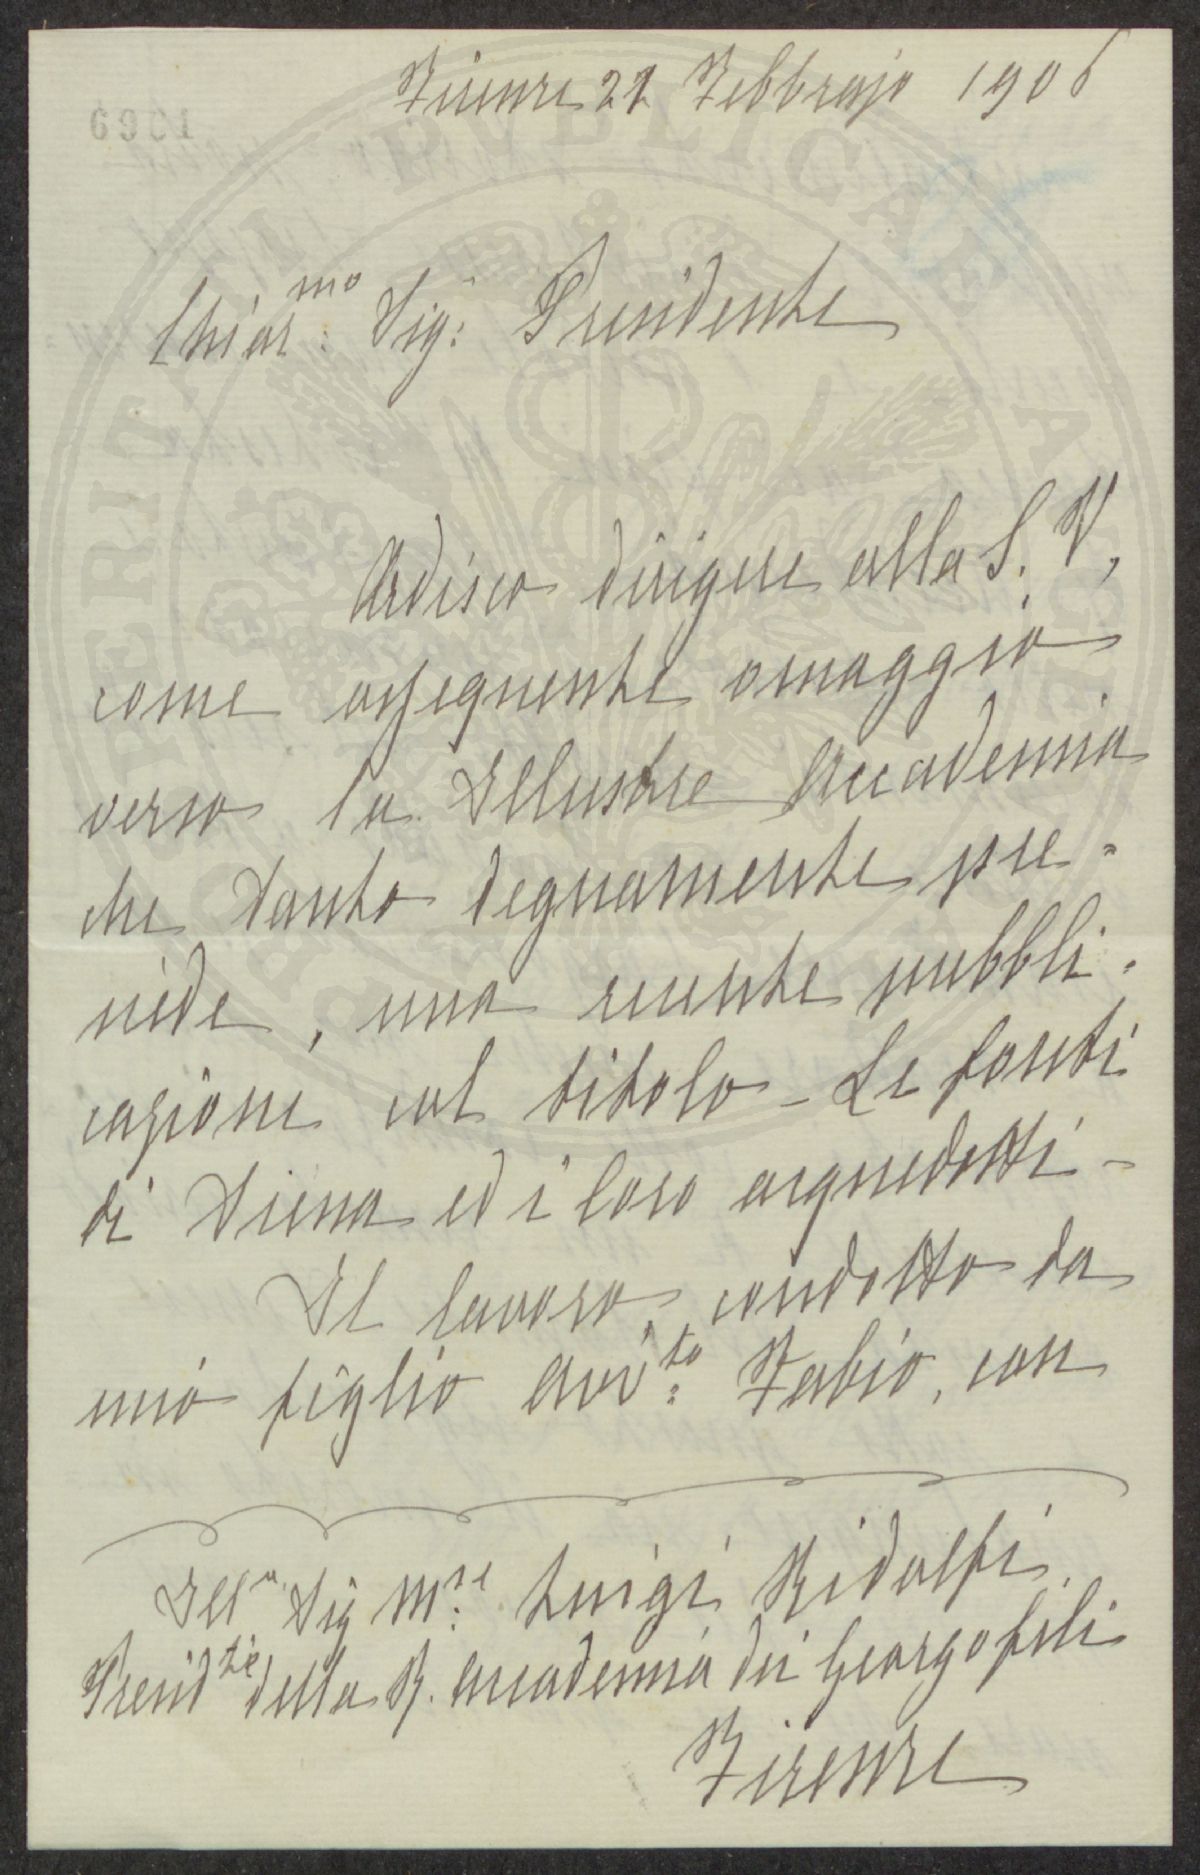 Firenze 22 Febbrajo 1906
6901
Chiar.mo Sig: Presidente
Ardisco dirigere alla S. V,
come ossequente omaggio
verso la Illustre Accademia
che tanto degnamente pre-
siede, una recente pubbli-
cazione col titolo - Le fonti
di Siena ed i loro aquedotti -
Il lavoro, condotto da
mio figlio Avv.to Fabio, con
Ill.o Sig M.se Luigi Ridolfi
Presid.te della R. Accademia dei Georgofili
Firenze
PROSPERITATI PVBLICAE AVGENDAE